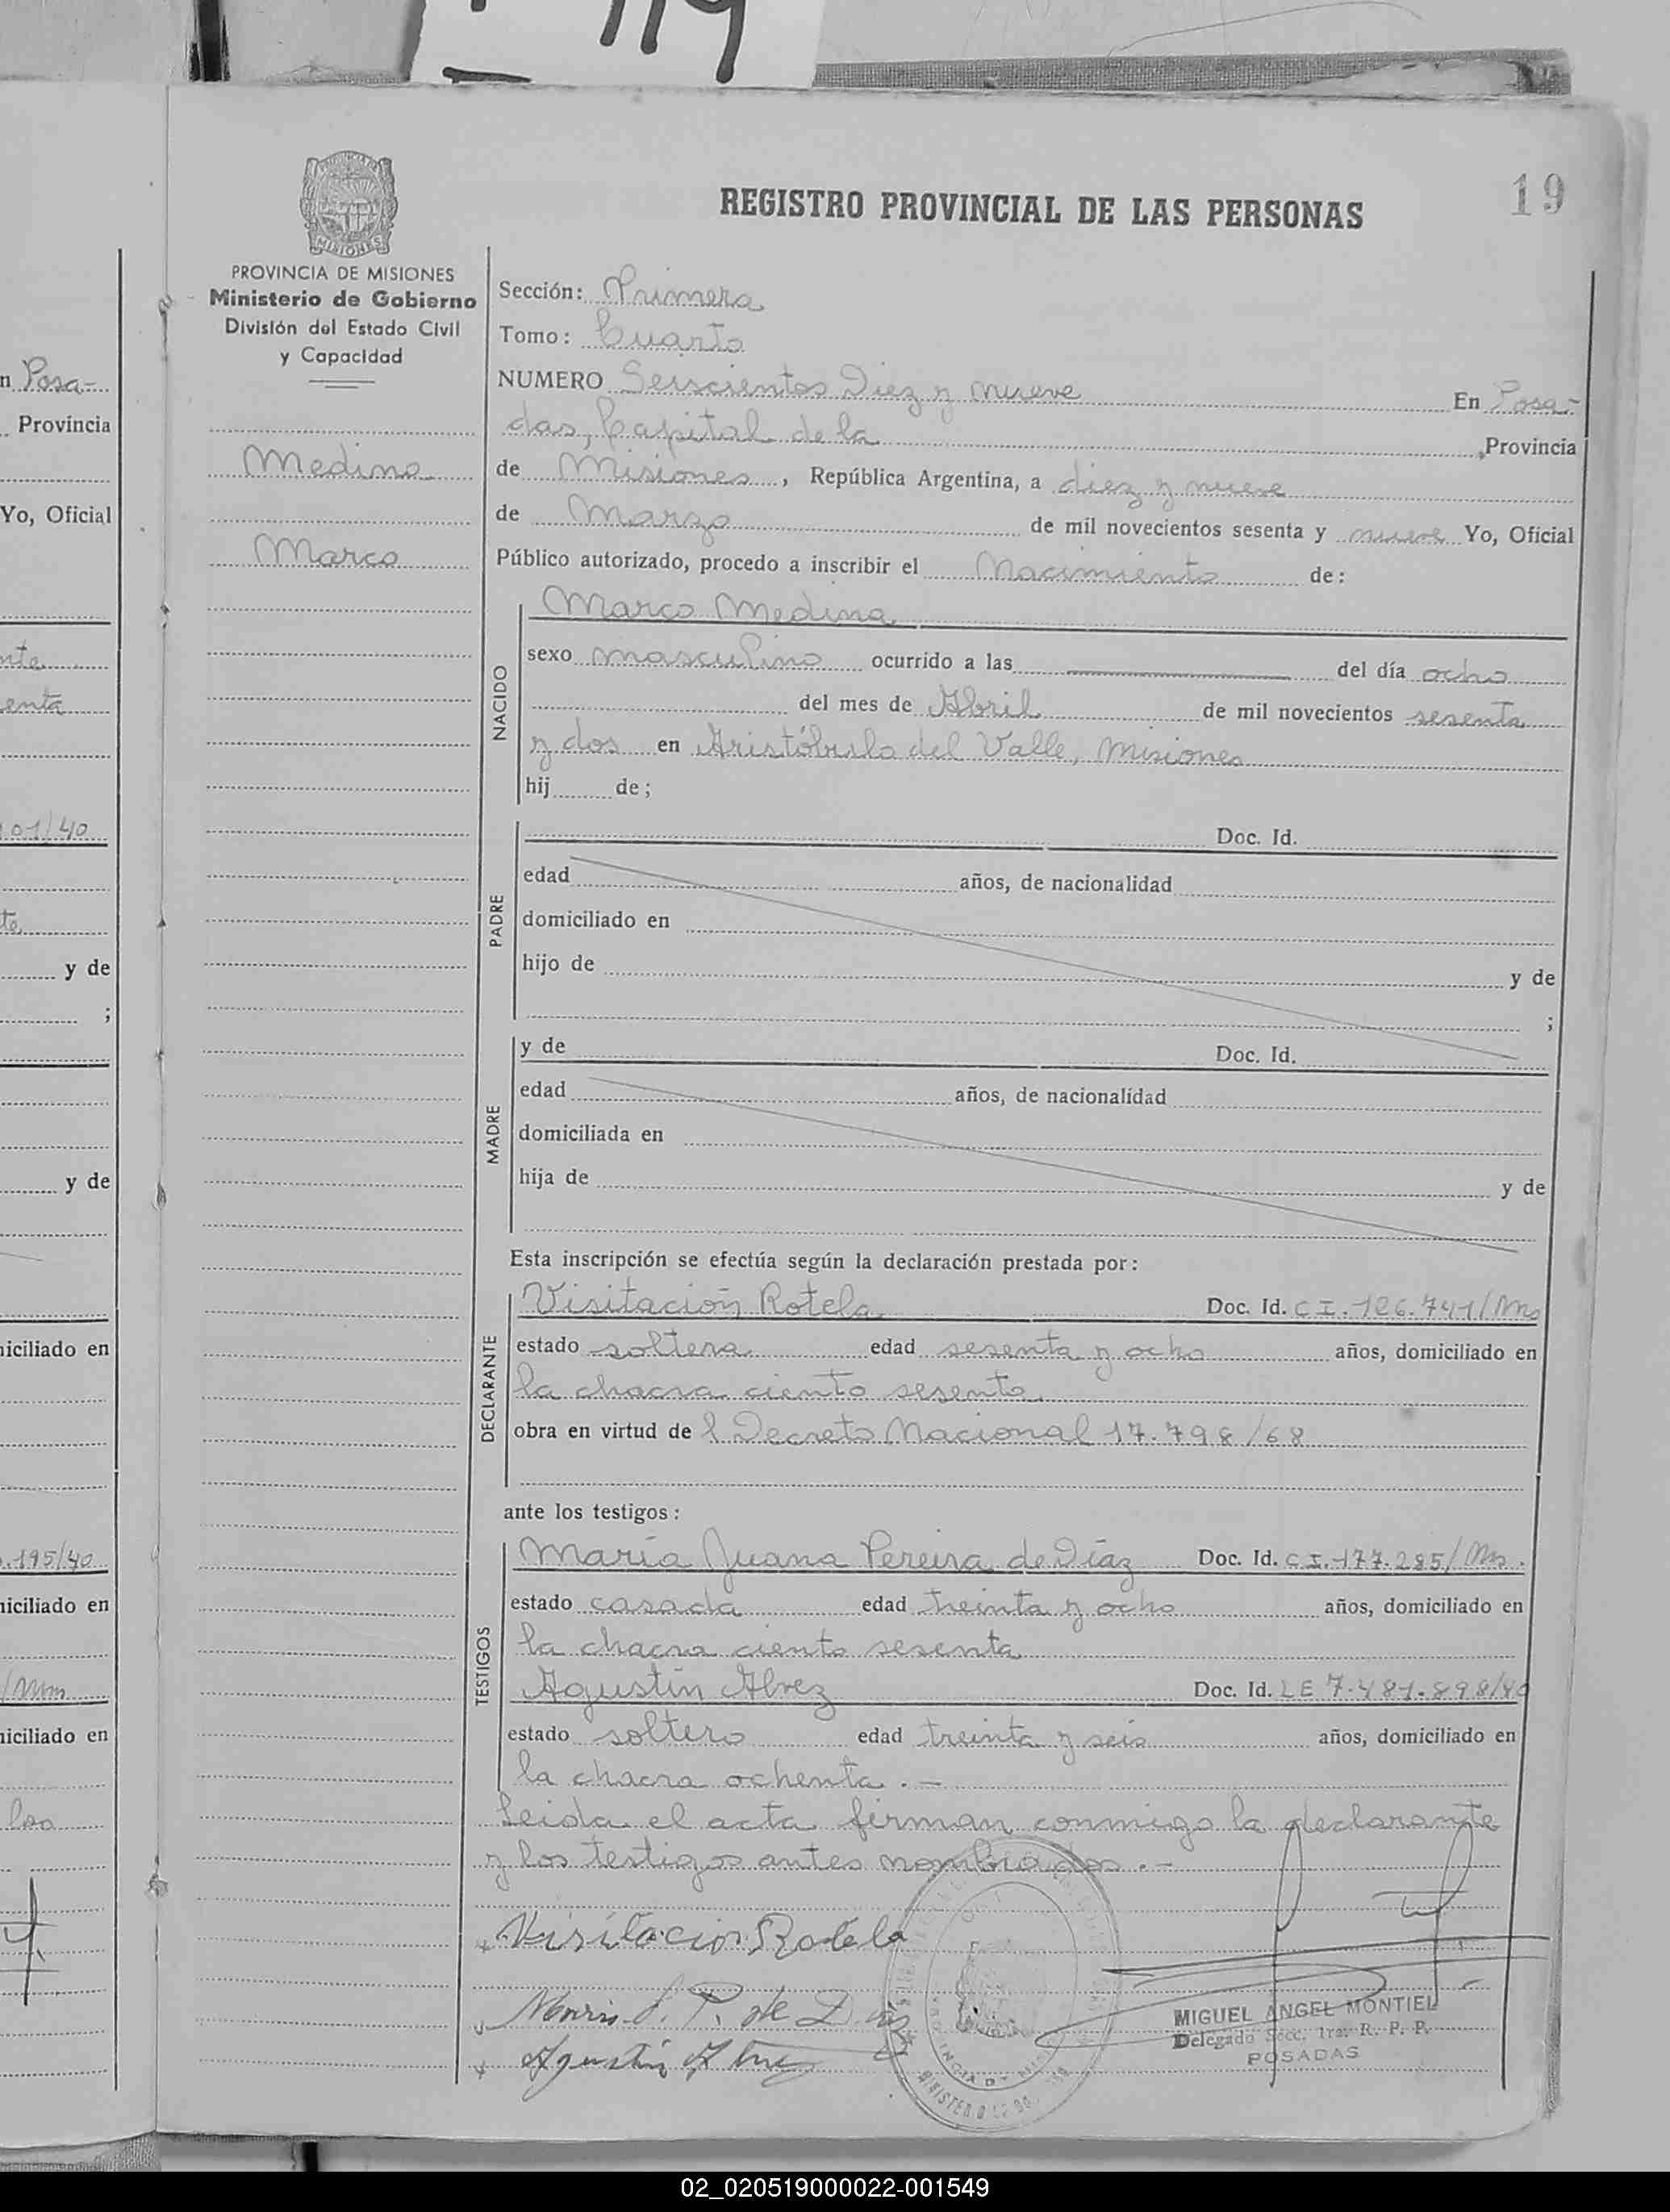 19
REGISTRO PROVINCIAL DE LAS PERSONAS
PROVINCIA DE MISIONES
Ministerio de Gobierno
División del Estado Civil
y Capacidad
Medina
Marco
Sección: Primera
Tomo: Cuarto
NUMERO Seiscientos Diez y nueve En Posa-
das, Capital de la Provincia
de Misiones, República Argentina, a diez y nueve
de Marzo de mil novecientos sesenta y nueve Yo, Oficial
Público autorizado, procedo a inscribir el Nacimiento de:
NACIDO
Marco Medina
sexo masculino ocurrido a las del día ocho
del mes de Abril de mil novecientos sesenta
y dos en Aristóbulo del Valle, Misiones
hij de;
PADRE
Doc. Id.
edad años, de nacionalidad
domiciliado en
hijo de y de
;
MADRE
y de Doc. Id.
edad años, de nacionalidad
domiciliada en
hija de y de
Esta inscripción se efectúa según la declaración prestada por:
DECLARANTE
Visitación Rotela Doc. Id. C I. 126.741/Mns
estado soltera edad sesenta y ocho años, domiciliado en
la chacra ciento sesenta
obra en virtud de l Decreto Nacional 17.798/68
ante los testigos:
TESTIGOS
María Juana Pereira de Díaz Doc. Id. C.I. 177.285/Mns.
estado casada edad treinta y ocho años, domiciliado en
la chacra ciento sesenta
Agustín Alvez Doc. Id. LE 7.481.898/40
estado soltero edad treinta y seis años, domiciliado en
la chacra ochenta.-
Leida el acta firman conmigo la declarante
y los testigos antes nombrados.-
Visitacion Rotela
Maria J. P. de Diaz
Agustin Alvez
MIGUEL ANGEL MONTIEL
Delegado Secc. 1ra. R. P. P.
POSADAS
n Posa-
Provincia
Yo, Oficial
nte
enta
101/40
te
y de
;
y de
niciliado en
.195/40
niciliado en
/Mns
niciliado en
las
02_020519000022-001549